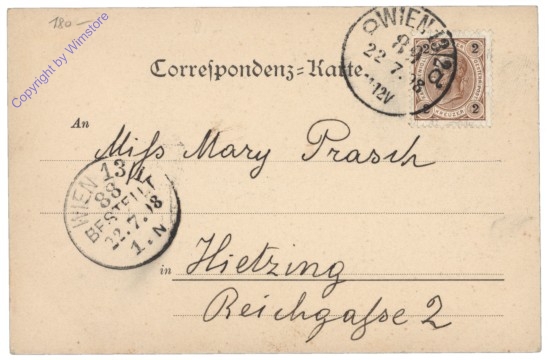 180-
Copyright by Wimstore
WIEN 13/2a
88
22.7.98
12V
2 2
2 2
Correspondenz=Karte.
An
Miss Mary Prasch
WIEN 13/1
88
BESTELLT
22.7.98
1.N
in
Hietzing
Reichgasse 2